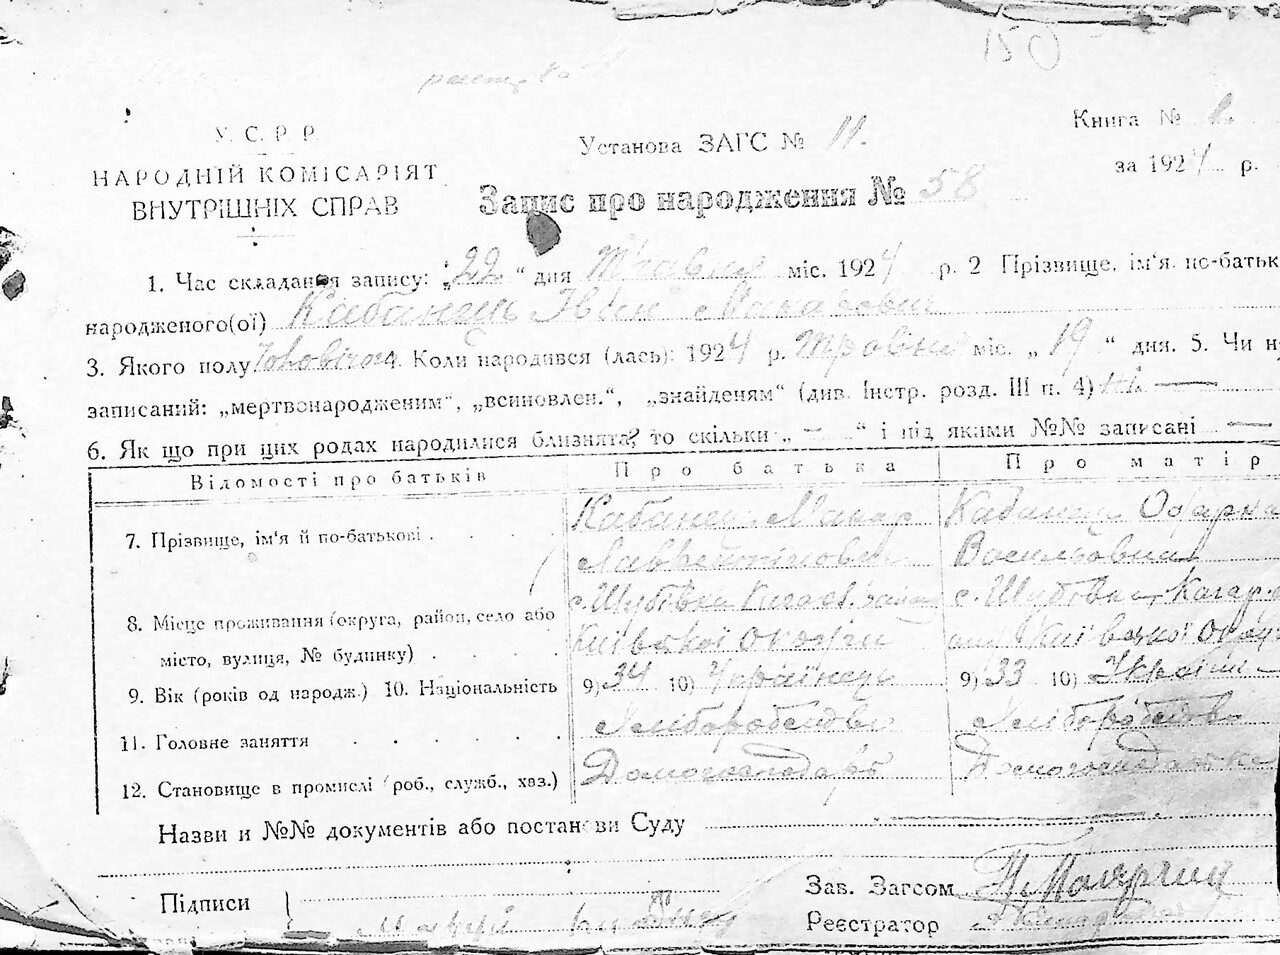 150
У. С. Р. Р.
НАРОДНІЙ КОМІСАРІЯТ
ВНУТРІШНІХ СПРАВ
Установа ЗАГС № 11.
Книга №
за 1924 р.
Запис про народження № 58
1. Час складання запису: „22“ дня Травня міс. 1924 р. 2 Прізвище, ім'я, по-батьк
народженого(ої) Кабанець Іван Макарович
3. Якого полу Чоловічого 4. Коли народився (лась): 1924 р. Травня міс. „19“ дня. 5. Чи н
записаний: „мертвонародженим“, „всиновлен.“, „знайденям“ (див. Інстр. розд. III п. 4) Ні —
6. Як що при цих родах народилися близнята? то скільки „ — “ і під якими №№ записані —
Відомості про батьків
Про батька
Про матір
7. Прізвище, ім'я й по-батькові
Кабанець Макар
Лаврентійович
Кабанець Офірка
Васильовна
8. Місце проживання (округа, район, село або
місто, вулиця, № будинку)
с. Шубівка
Київської округи
с. Шубівка
Київської
9. Вік (років од народж.) 10. Національність
9) 34 10) Українець
9) 33 10) Україн
11. Головне заняття
Хліборобство
Хліборобство
12. Становище в промислі (роб., служб., хаз.)
Домогосподарь
Домогосподарка
Назви и №№ документів або постанови Суду
Підписи
Зав. Загсом
Реєстратор